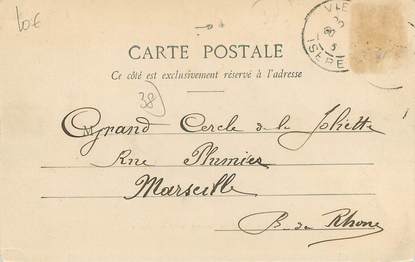 10€
VIE
ISERE
CARTE POSTALE
Ce côté est exclusivement réservé à l'adresse
38
M Grand Cercle de la Joliette
Rue Plumier
Marseille
B. du Rhone